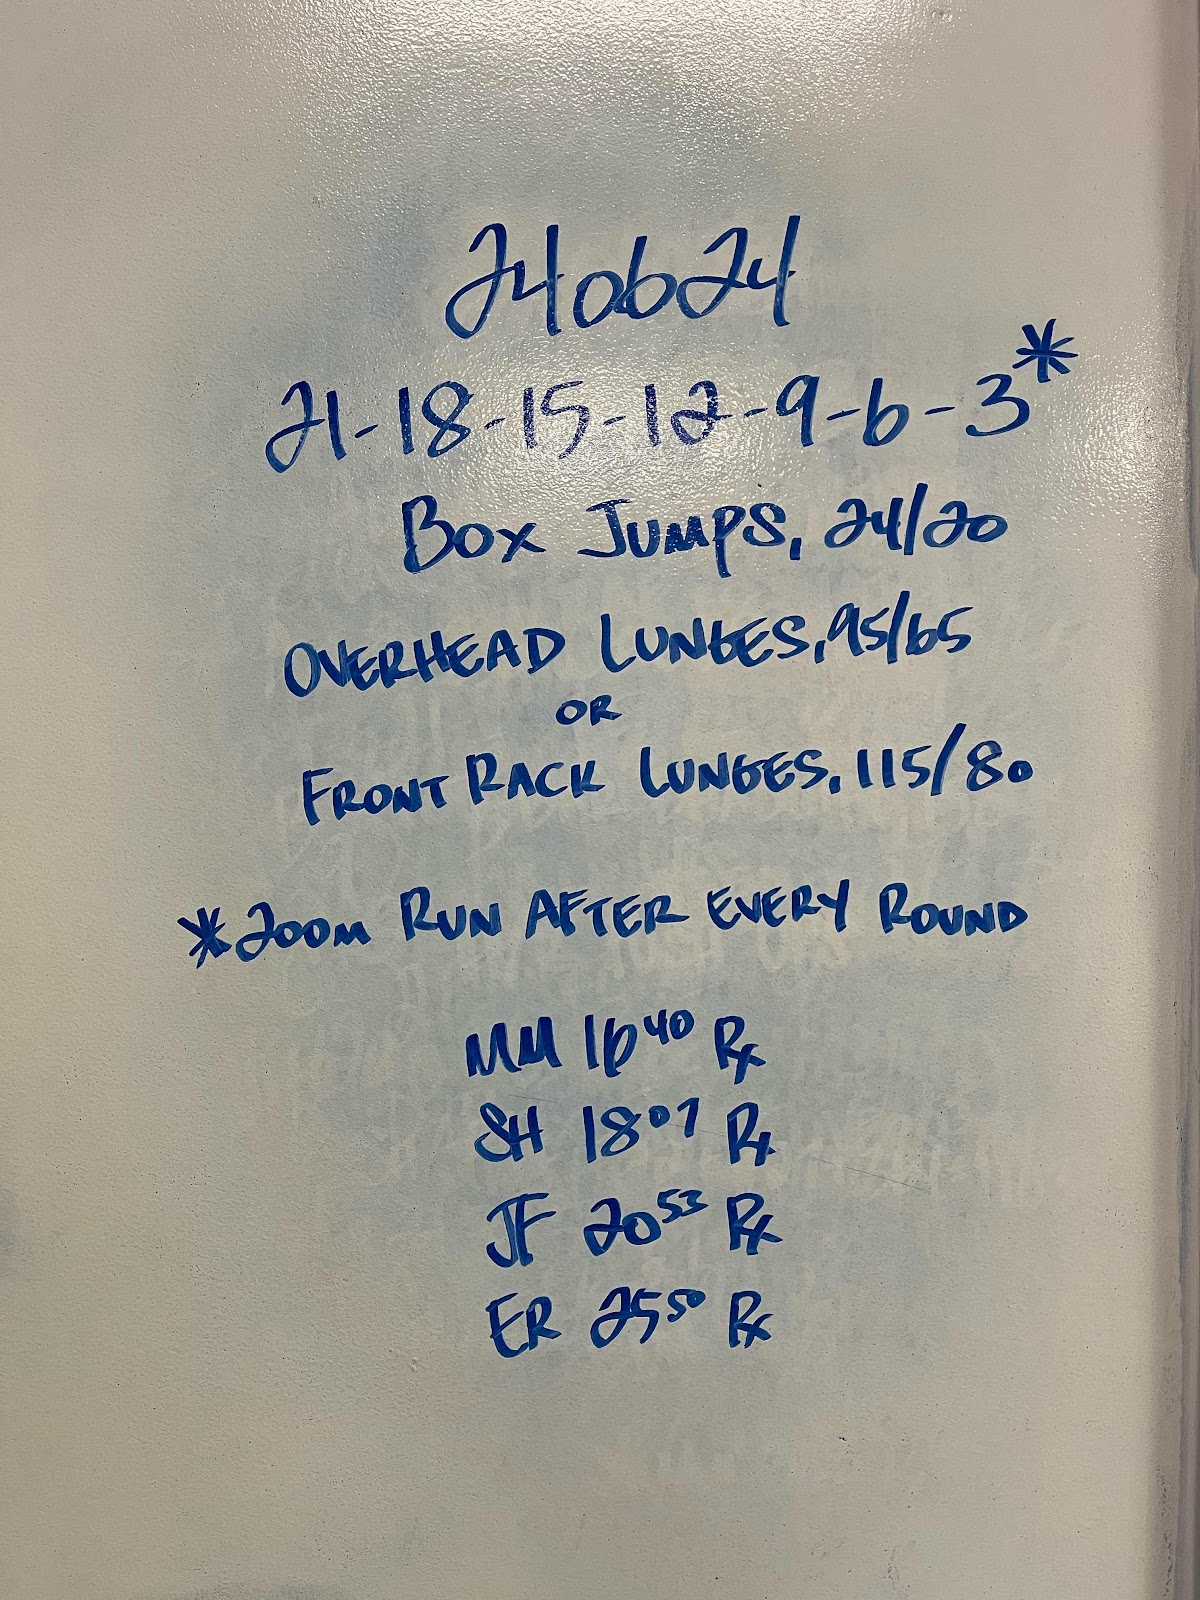 240624
21-18-15-12-9-6-3*
BOX JUMPS, 24/20
OVERHEAD LUNGES, 95/65
OR
FRONT RACK LUNGES, 115/80
*200m RUN AFTER EVERY ROUND
MM 16 40 Rx
SH 18 07 Rx
JF 20 53 Rx
ER 25 50 Rx